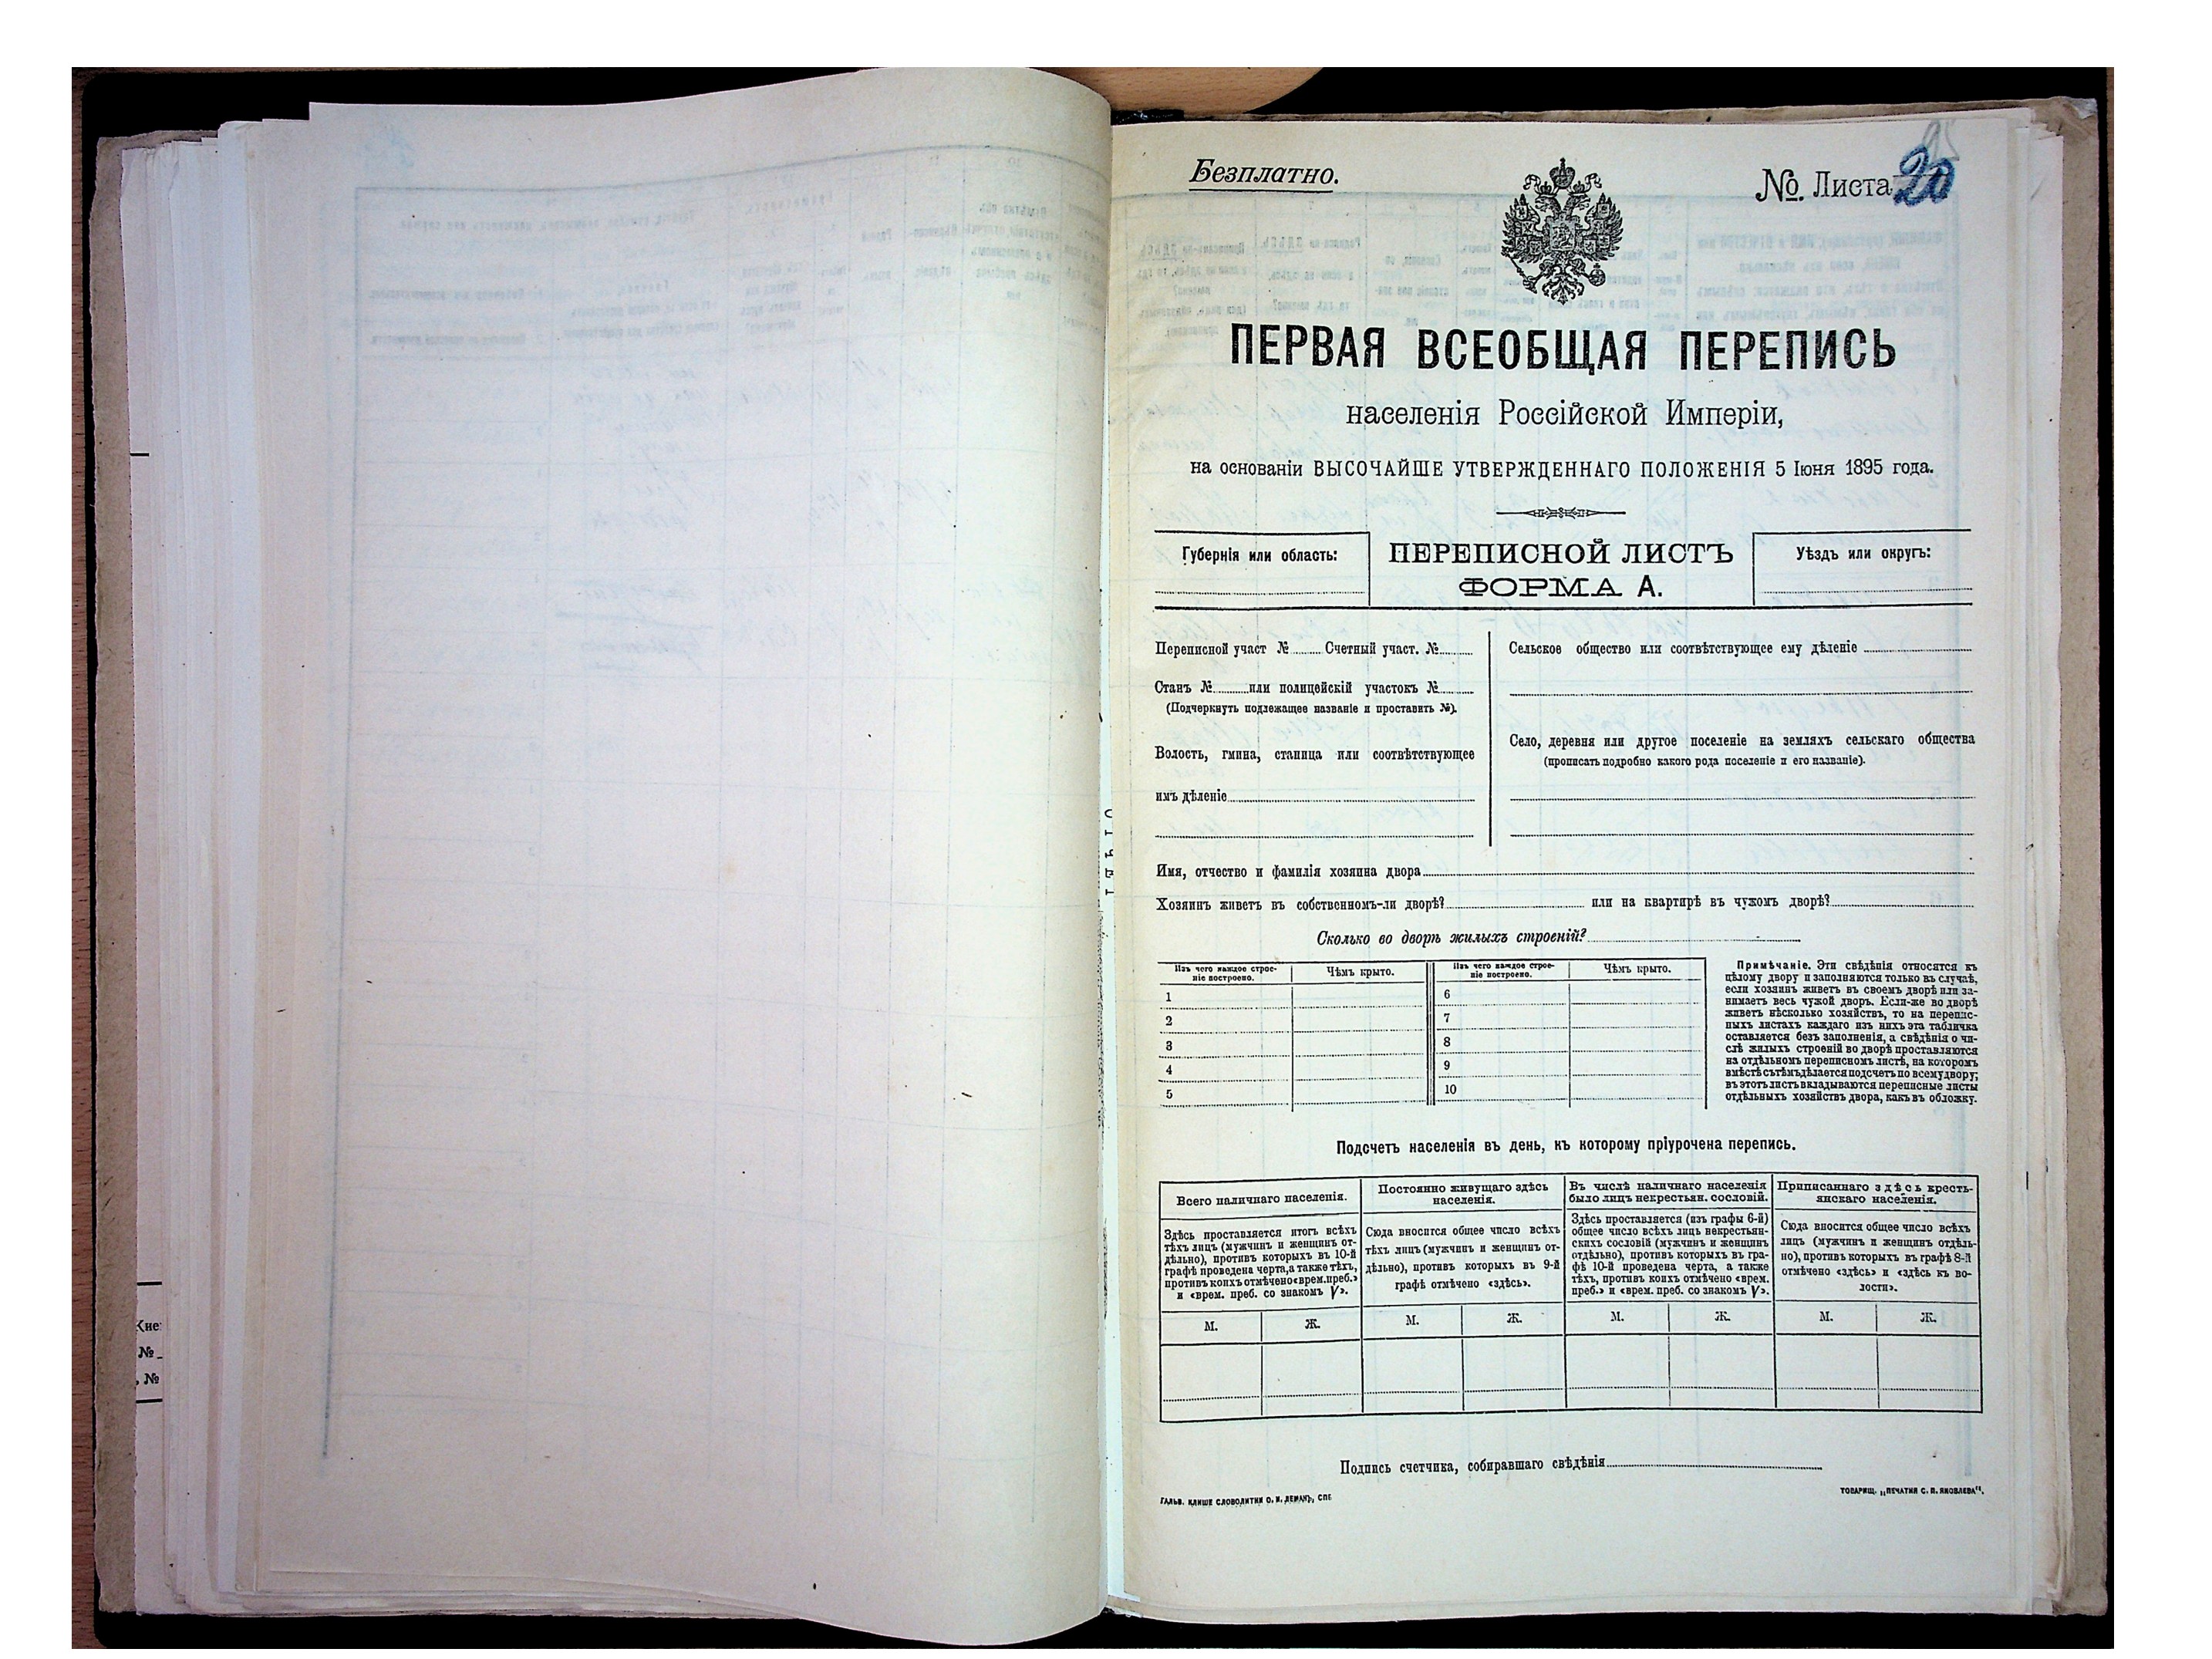 Безплатно.
№. Листа 20
ПЕРВАЯ ВСЕОБЩАЯ ПЕРЕПИСЬ
населенія Россійской Имперіи,
на основаніи ВЫСОЧАЙШЕ УТВЕРЖДЕННАГО ПОЛОЖЕНІЯ 5 Іюня 1895 года.
Губернія или область:
ПЕРЕПИСНОЙ ЛИСТЪ
ФОРМА А.
Уѣздъ или округъ:
Переписной участ № Счетный участ. №
Станъ № или полицейскій участокъ №
(Подчеркнуть подлежащее названіе и проставить №).
Волость, гмина, станица или соотвѣтствующее
имъ дѣленіе
Сельское общество или соотвѣтствующее ему дѣленіе
Село, деревня или другое поселеніе на земляхъ сельскаго общества
(прописать подробно какого рода поселеніе и его названіе).
Имя, отчество и фамилія хозяина двора
Хозяинъ живетъ въ собственномъ-ли дворѣ? или на квартирѣ въ чужомъ дворѣ?
Сколько во дворѣ жилыхъ строеній?
Изъ чего каждое строе-
ніе построено.
Чѣмъ крыто.
1
2
3
4
5
Изъ чего каждое строе-
ніе построено.
Чѣмъ крыто.
6
7
8
9
10
Примѣчаніе. Эти свѣдѣнія относятся къ
цѣлому двору и заполняются только въ случаѣ,
если хозяинъ живетъ въ своемъ дворѣ или за-
нимаетъ весь чужой дворъ. Если-же во дворѣ
живетъ нѣсколько хозяйствъ, то на перепис-
ныхъ листахъ каждаго изъ нихъ эта табличка
оставляется безъ заполненія, а свѣдѣнія о чи-
слѣ жилыхъ строеній во дворѣ проставляются
на отдѣльномъ переписномъ листѣ, на которомъ
вмѣстѣ съ тѣмъ дѣлается подсчетъ по всему двору;
въ этотъ листъ вкладываются переписные листы
отдѣльныхъ хозяйствъ двора, какъ въ обложку.
Подсчетъ населенія въ день, къ которому пріурочена перепись.
Всего наличнаго населенія.
Здѣсь проставляется итогъ всѣхъ
тѣхъ лицъ (мужчинъ и женщинъ от-
дѣльно), противъ которыхъ въ 10-й
графѣ проведена черта, а также тѣхъ,
противъ коихъ отмѣчено «врем. преб.»
и «врем. преб. со знакомъ V».
М. Ж.
Постоянно живущаго здѣсь
населенія.
Сюда вносится общее число всѣхъ
тѣхъ лицъ (мужчинъ и женщинъ от-
дѣльно), противъ которыхъ въ 9-й
графѣ отмѣчено «здѣсь».
М. Ж.
Въ числѣ наличнаго населенія
было лицъ некрестьян. сословій.
Здѣсь проставляется (изъ графы 6-й)
общее число всѣхъ лицъ некрестьян-
скихъ сословій (мужчинъ и женщинъ
отдѣльно), противъ которыхъ въ гра-
фѣ 10-й проведена черта, а также
тѣхъ, противъ коихъ отмѣчено «врем.
преб.» и «врем. преб. со знакомъ V».
М. Ж.
Приписаннаго здѣсь кресть-
янскаго населенія.
Сюда вносится общее число всѣхъ
лицъ (мужчинъ и женщинъ отдѣль-
но), противъ которыхъ въ графѣ 8-й
отмѣчено «здѣсь» и «здѣсь къ во-
лости».
М. Ж.
Подпись счетчика, собиравшаго свѣдѣнія
ГАЛЬВ. КЛИШЕ СЛОВОЛИТНИ О. И. ЛЕМАНЪ, СПБ
ТОВАРИЩ. „ПЕЧАТНЯ С. П. ЯКОВЛЕВА".